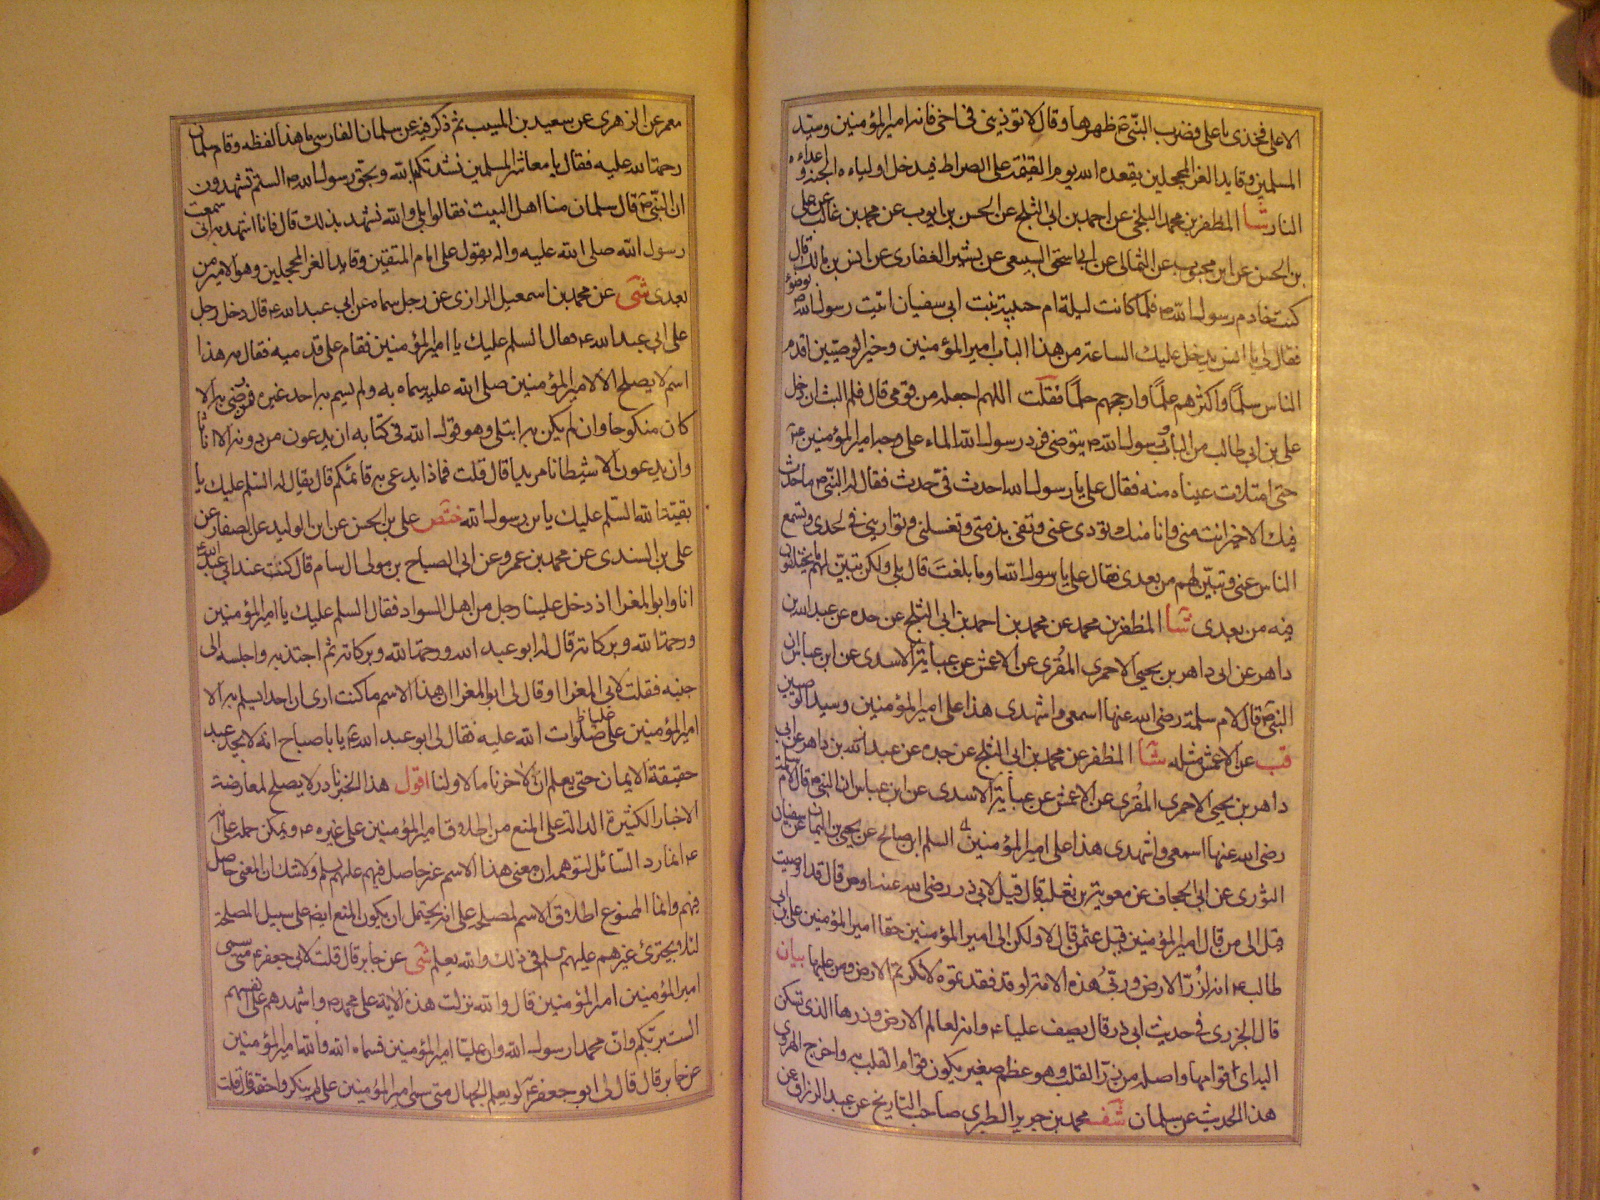 الا على فخذى يا على فضرب النبى ع ظهرها وقال لا تؤذينى فى اخى فانه امير المؤمنين وسيد
المسلمين وقايد الغر المحجلين يقعده الله يوم القيمة على الصراط فيدخل اولياءه الجنة واعداءه
النار شا المظفر بن محمد البلخى عن احمد بن ابى الثلج عن الحسن بن ايوب عن محمد بن غالب عن على
بن الحسن عن ابن محبوب عن الثمالى عن ابى اسحق السبيعى عن بشير الغفارى عن انس بن مالك قال
كنت خادم رسول الله ص فلما كانت ليلة ام حبيبة بنت ابى سفيان اتيت رسول الله ص بوضوء
فقال لى يا انس يدخل عليك الساعة من هذا الباب امير المؤمنين وخير الوصيين اقدم
الناس سلما واكثرهم علما وارجحهم حلما فقلت اللهم اجعله من قومى قال فلم البث ان دخل
على بن ابى طالب من الباب ورسول الله ص يتوضى فرد رسول الله الماء على وجه امير المؤمنين ع
حتى امتلات عيناه منه فقال على يا رسول الله احدث فى حدث فقال له النبى ص ما حدث
فيك الا خير انت منى وانا منك تؤدى عنى وتفى بذمتى وتغسلنى وتوارينى فى لحدى وتسمع
الناس عنى وتبين لهم من بعدى فقال على يا رسول الله اوما بلغت قال بلى ولكن تبين لهم ما يختلفون
فيه من بعدى شا المظفر بن محمد عن محمد بن احمد بن ابى الثلج عن جده عن عبد الله بن
داهر عن ابى داهر بن يحيى الاحمرى المقرى عن الاعمش عن عباية الاسدى عن ابن عباس ان
النبى ص قال لام سلمة رضى الله عنها اسمعى واشهدى هذا على امير المؤمنين وسيد الوصيين
قب عن الاعمش مثله شا المظفر عن محمد بن ابى الثلج عن جده عن عبد الله بن داهر عن ابى
داهر بن يحيى الاحمرى المقرى عن الاعمش عن عباية الاسدى عن ابن عباس ان النبى ص قال لام سلمة
رضى الله عنها اسمعى واشهدى هذا على امير المؤمنين السلم ابن صالح عن يحيى بن اليمان عن سفيان
الثورى عن ابى الجحاف عن معوية بن ثعلبة قال قيل لابى ذر رضى الله عنه اوص قال قد اوصيت
قيل الى من قال امير المؤمنين قيل عثمن قال لا ولكن الى امير المؤمنين حقا امير المؤمنين على بن ابى
طالب ع انه لزر الارض وربى هذه الامة لو قد فقدتموه لانكرتم الارض ومن عليها بيان
قال الجزرى فى حديث ابى ذر قال يصف عليا ع وانه لعالم الارض وزرها الذى تسكن
اليه اى قوامها واصله من زر القلب وهو عظم صغير يكون قوام القلب به واخرج الهروى
هذا الحديث عن سلمان شف محمد بن جرير الطبرى صاحب التاريخ عن عبد الرزاق عن
معمر عن الزهرى عن سعيد بن المسيب ثم ذكر فيه عن سلمان الفارسى ما هذا لفظه وقام سلمان
رحمة الله عليه فقال يا معاشر المسلمين نشدتكم بالله وبحق رسول الله ص الستم تشهدون
ان النبى ص قال سلمان منا اهل البيت فقالوا بلى والله نشهد بذلك قال فانا اشهد به انى سمعت
رسول الله صلى الله عليه واله يقول على امام المتقين وقايد الغر المحجلين وهو الامير من
بعدى شى عن محمد بن اسمعيل الرازى عن رجل سماه عن ابى عبد الله ع قال دخل رجل
على ابى عبد الله ع فقال السلم عليك يا امير المؤمنين فقام على قدميه فقال مه هذا
اسم لا يصلح الا لامير المؤمنين صلى الله عليه سماه به ولم يسم به احد غيره فرضى به الا
كان منكوحا وان لم يكن به ابتلى وهو قول الله فى كتابه ان يدعون من دونه الا اناثا
وان يدعون الا شيطانا مريدا قال قلت فماذا يدعى به قائمكم قال يقال له السلم عليك يا
بقية الله السلم عليك يا بن رسول الله ختص على بن الحسن عن ابن الوليد عن الصفار عن
على بن السندى عن محمد بن عمرو عن ابى الصباح بن مولى ال سام قال كنت عند ابى عبد الله ع
انا وابو المغرا اذ دخل علينا رجل من اهل السواد فقال السلم عليك يا امير المؤمنين
ورحمة الله وبركاته قال له ابو عبد الله ورحمة الله وبركاته ثم اجتذبه واجلسه الى
جنبه فقلت لابى المغرا او قال لى ابو المغرا ان هذا الاسم ما كنت ارى ان احدا يسلم به الا
امير المؤمنين على صلوات الله عليه فقال لى ابو عبد الله ع يا با صباح انه لا يجد عبد
حقيقة الايمان حتى يعلم ان لاخرنا ما لاولنا اقول هذا الخبر نادر لا يصلح لمعارضة
الاخبار الكثيرة الدالة على المنع من اطلاق امير المؤمنين على غيره ع ويمكن حمله على انه
ع انما رد السائل لتوهمه ان معنى هذا الاسم غير حاصل فيهم عليهم السلم ولا شك ان المعنى حاصل
فيهم وانما الممنوع اطلاق الاسم لمصلحة على انه يحتمل ان يكون المنع ايض على سبيل المصلحة
لئلا يجترئ غيرهم عليهم السلم فى ذلك والله يعلم شى عن جابر قال قلت لابى جعفر ع متى سمى
امير المؤمنين امير المؤمنين قال والله نزلت هذه الاية على محمد ص واشهدهم على انفسهم
الست بربكم وان محمدا رسول الله وان عليا امير المؤمنين فسماه الله والله امير المؤمنين
عن جابر قال قال لى ابو جعفر ع لو يعلم الجهال متى سمى امير المؤمنين على لم ينكروا حقه قال قلت